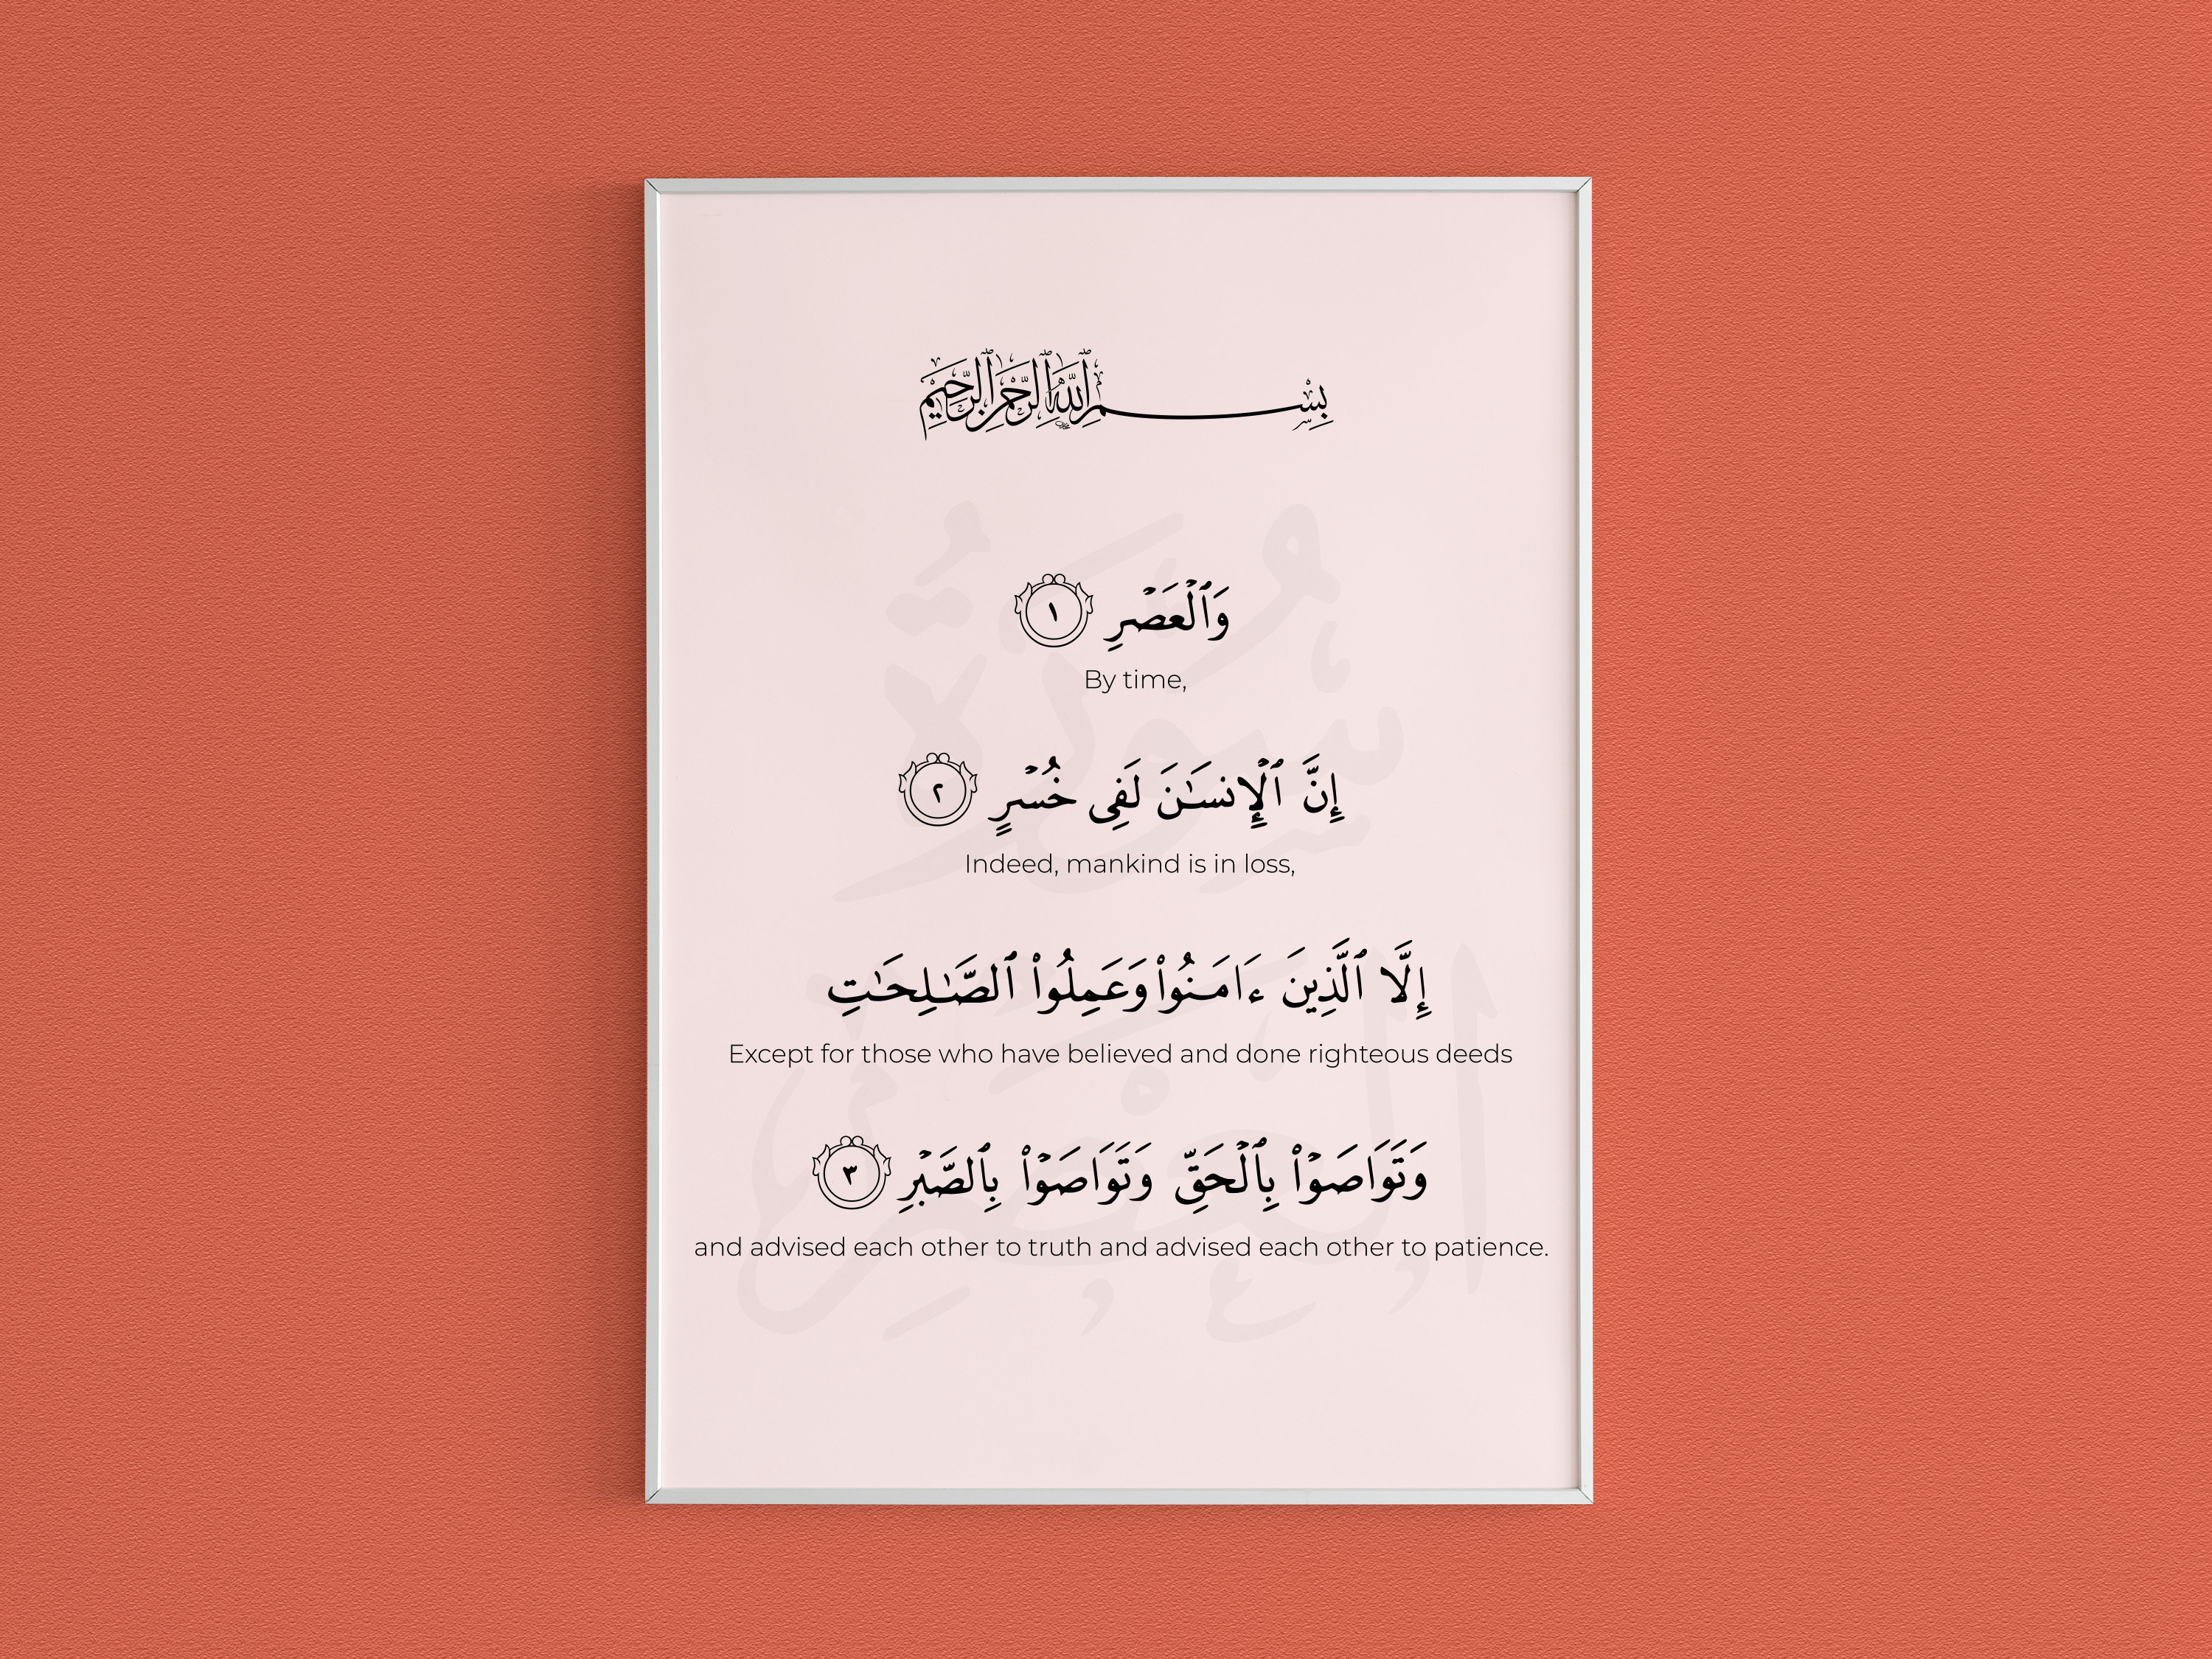 بِسْمِ ٱللَّهِ ٱلرَّحْمَٰنِ ٱلرَّحِيمِ
وَٱلْعَصْرِ ١
By time,
إِنَّ ٱلْإِنسَـٰنَ لَفِى خُسْرٍ ٢
Indeed, mankind is in loss,
إِلَّا ٱلَّذِينَ ءَامَـنُوا۟ وَعَمِلُوا۟ ٱلصَّـٰلِحَـٰتِ
Except for those who have believed and done righteous deeds
وَتَوَاصَوْا۟ بِٱلْحَقِّ وَتَوَاصَوْا۟ بِٱلصَّبْرِ ٣
and advised each other to truth and advised each other to patience.
سُورَةُ
العَصْرِ